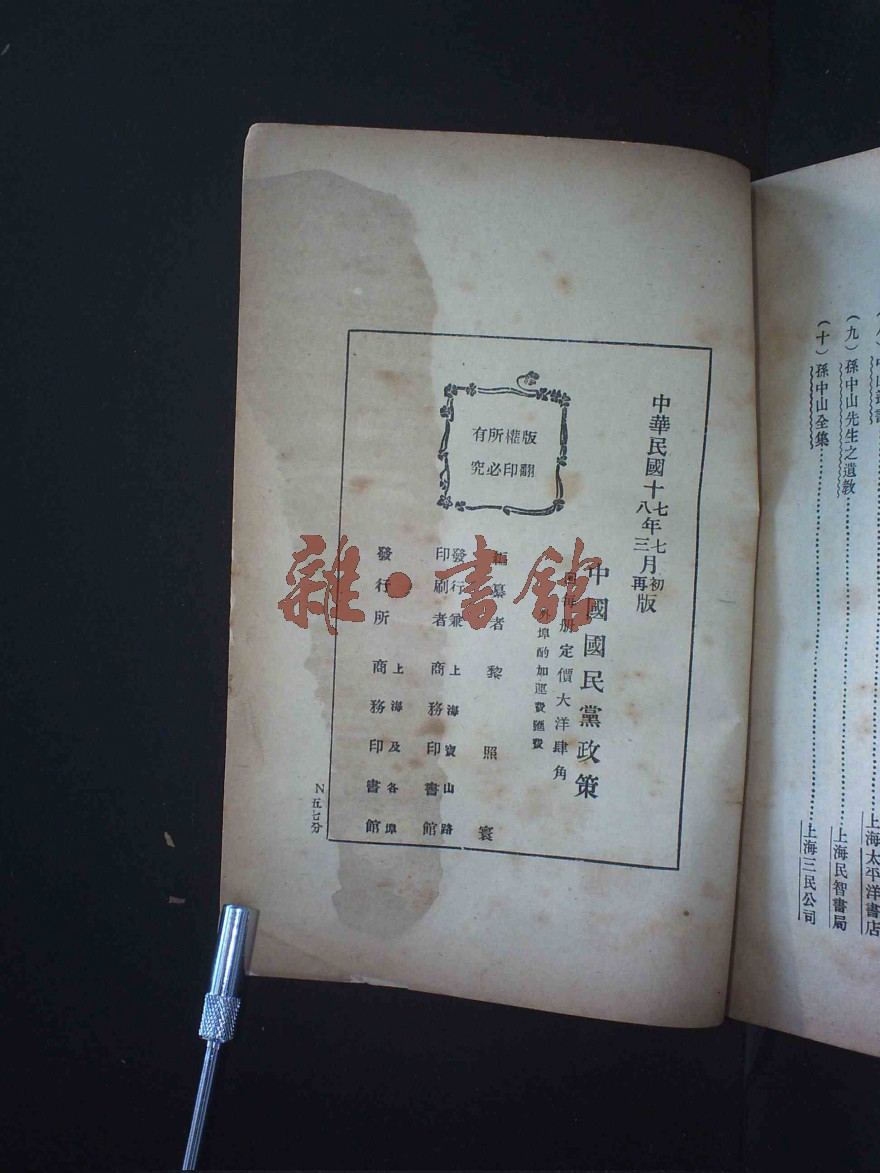 上海太平洋書店
(九)孫中山先生之遺教……上海民智書局
(十)孫中山全集……上海三民公司
中華民國十七年七月初版
八 三 再
中國國民黨政策
每册定價大洋肆角
外埠酌加運費匯費
版權所有
翻印必究
編纂者 黎照寰
發行兼印刷者 上海寶山路 商務印書館
發行所 上海及各埠 商務印書館
N五七分
雜·書館